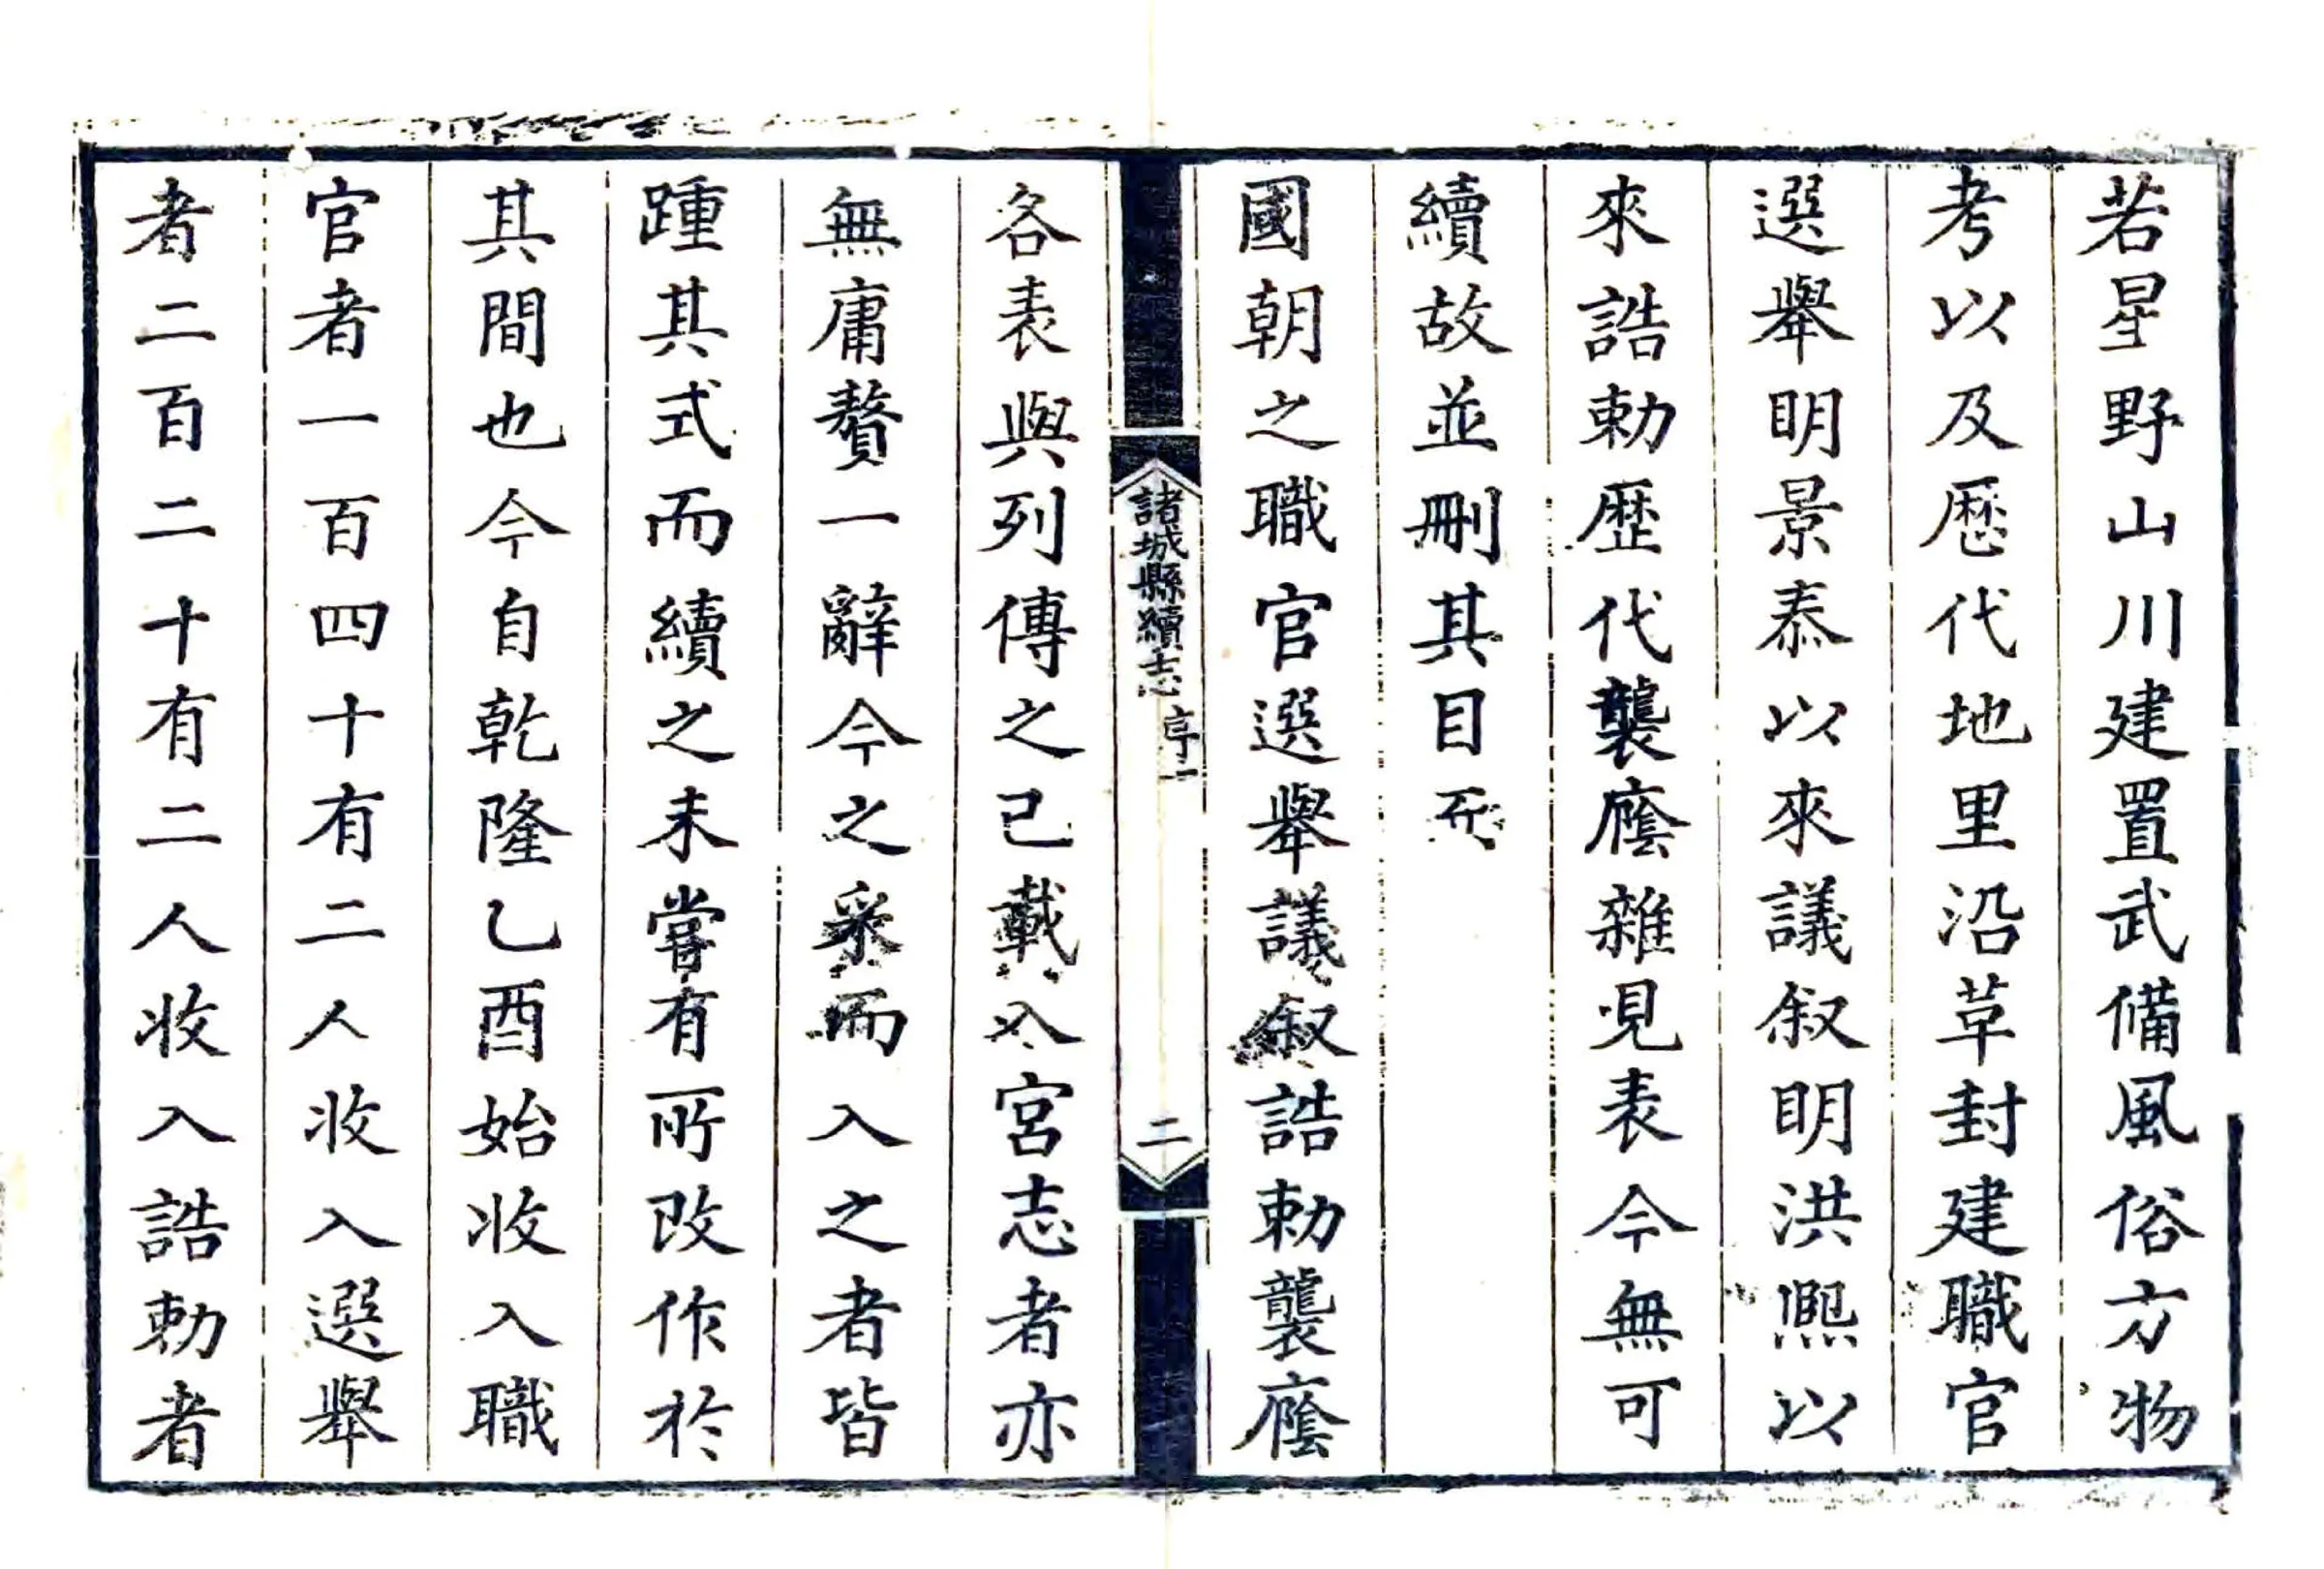 若星野山川建置武備風俗方物
考以及歷代地里沿革封建職官
選舉明景泰以來議叙明洪熈以
來誥勅歷代襲廕雜見表今無可
續故並刪其目所
國朝之職官選舉議叙誥勅襲廕
諸城縣續志 序一 二
各表與列傳之已載入宮志者亦
無庸贅一辭今之采而入之者皆
踵其式而續之未嘗有所改作於
其間也今自乾隆乙酉始收入職
官者一百四十有二人收入選舉
者二百二十有二人收入誥勅者